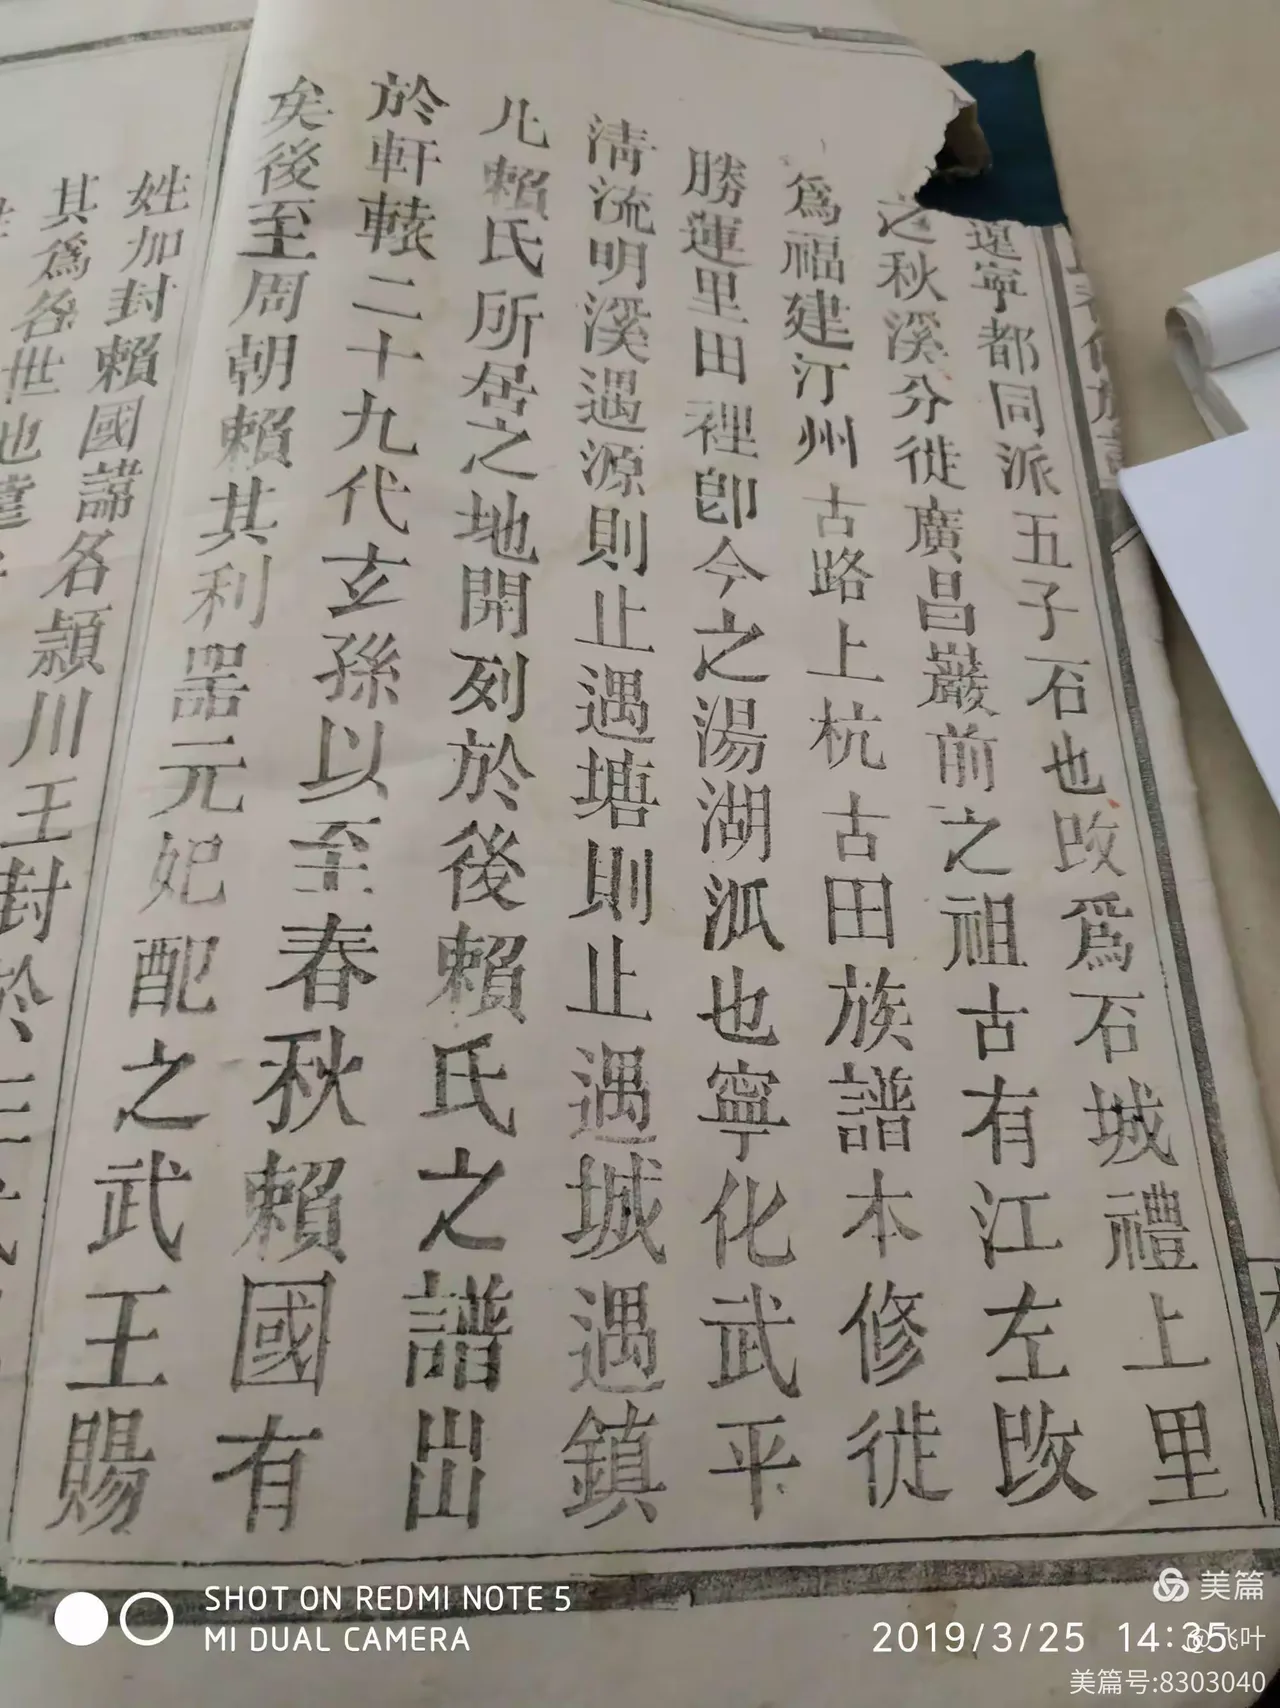 遠寧都同派五子石也改爲石城禮上里
之秋溪分徙廣昌巖前之祖古有江左改
爲福建汀州古路上杭古田族譜本修徙
勝運里田裡卽今之湯湖泒也寧化武平
清流明溪遇源則止遇塘則止遇城遇鎮
凡賴氏所居之地開列於後賴氏之譜出
於軒轅二十九代玄孫以至春秋賴國有
矣後至周朝賴其利噐元妃配之武王賜
姓加封賴國諱各潁川王封於
其爲各世也
SHOT ON REDMI NOTE 5
MI DUAL CAMERA
美篇
2019/3/25 14:35
@飞叶
美篇号:8303040